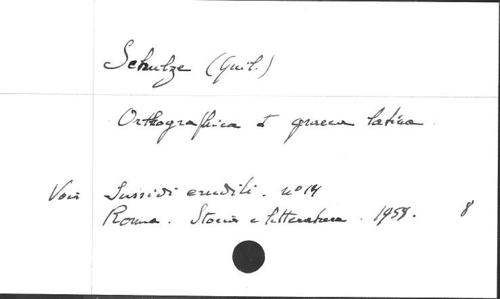 Schulze (Guil.)
Orthographica et graeca latina
Voir Sussidi eruditi. n° 14
Roma. Storia e letteratura. 1958. 8